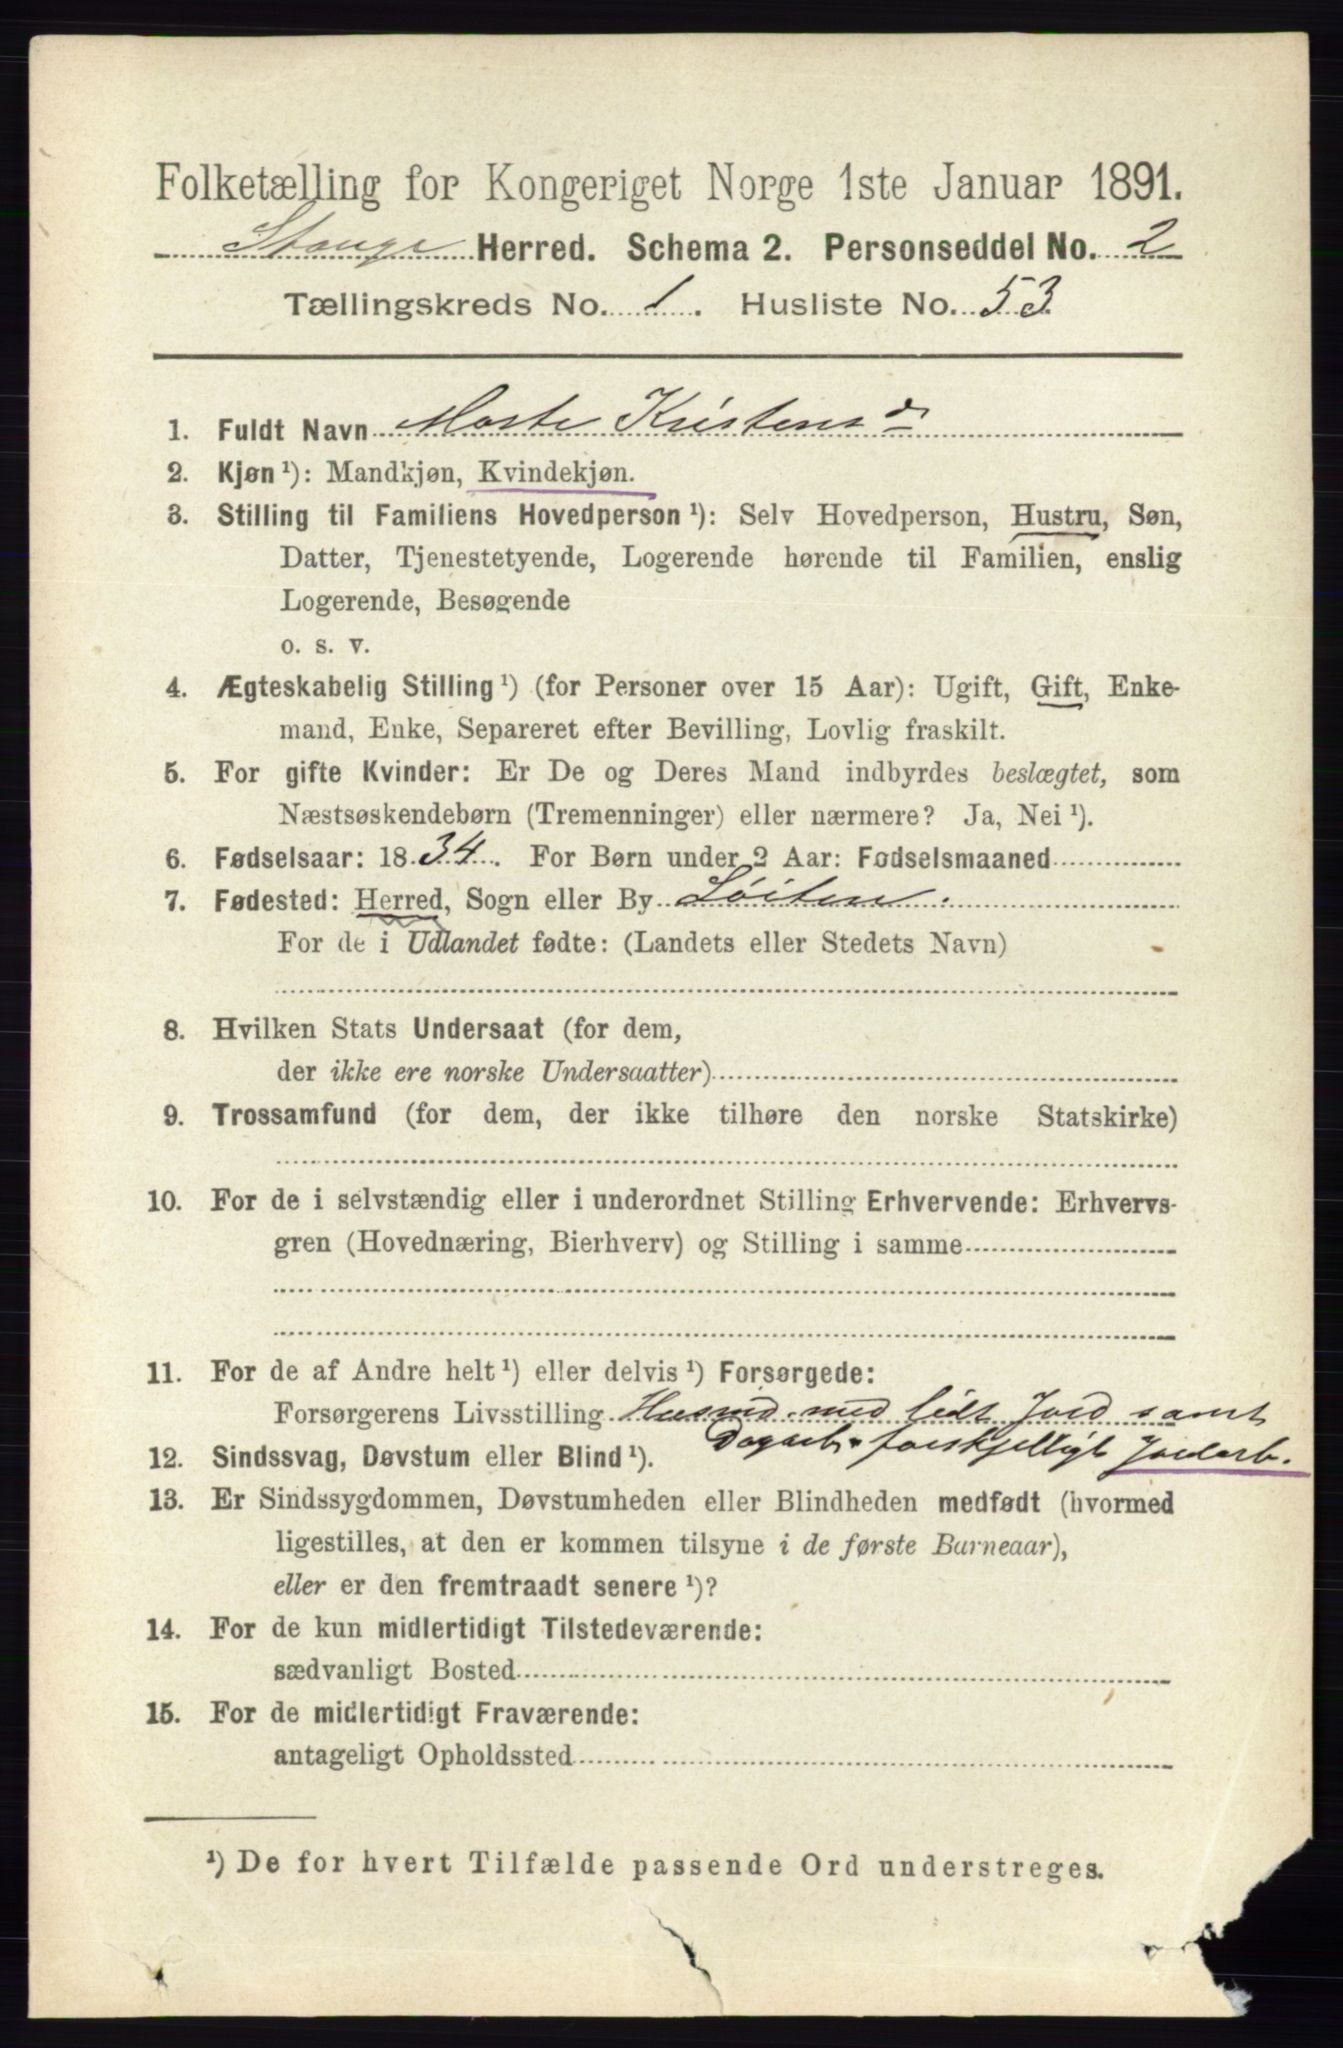 Folketælling for Kongeriget Norge 1ste Januar 1891.
Stange Herred. Schema 2. Personseddel No. 2
Tællingskreds No. 1. Husliste No. 53.
1. Fuldt Navn Marte Kristensd
2. Kjøn ¹): Mandkjøn, Kvindekjøn.
3. Stilling til Familiens Hovedperson ¹): Selv Hovedperson, Hustru, Søn,
Datter, Tjenestetyende, Logerende hørende til Familien, enslig
Logerende, Besøgende
o. s. v.
4. Ægteskabelig Stilling ¹) (for Personer over 15 Aar): Ugift, Gift, Enke-
mand, Enke, Separeret efter Bevilling, Lovlig fraskilt.
5. For gifte Kvinder: Er De og Deres Mand indbyrdes beslægtet, som
Næstsøskendebørn (Tremenninger) eller nærmere? Ja, Nei ¹).
6. Fødselsaar: 1834. For Børn under 2 Aar: Fødselsmaaned
7. Fødested: Herred, Sogn eller By Löiten.
For de i Udlandet fødte: (Landets eller Stedets Navn)
8. Hvilken Stats Undersaat (for dem,
der ikke ere norske Undersaatter)
9. Trossamfund (for dem, der ikke tilhøre den norske Statskirke)
10. For de i selvstændig eller i underordnet Stilling Erhvervende: Erhvervs-
gren (Hovednæring, Bierhverv) og Stilling i samme
11. For de af Andre helt ¹) eller delvis ¹) Forsørgede:
Forsørgerens Livsstilling Husmd. med lidt Jord samt
Dagarb. forskjelligt Jordarb.
12. Sindssvag, Døvstum eller Blind ¹).
13. Er Sindssygdommen, Døvstumheden eller Blindheden medfødt (hvormed
ligestilles, at den er kommen tilsyne i de første Barneaar),
eller er den fremtraadt senere ¹)?
14. For de kun midlertidigt Tilstedeværende:
sædvanligt Bosted
15. For de midlertidigt Fraværende:
antageligt Opholdssted
¹) De for hvert Tilfælde passende Ord understreges.